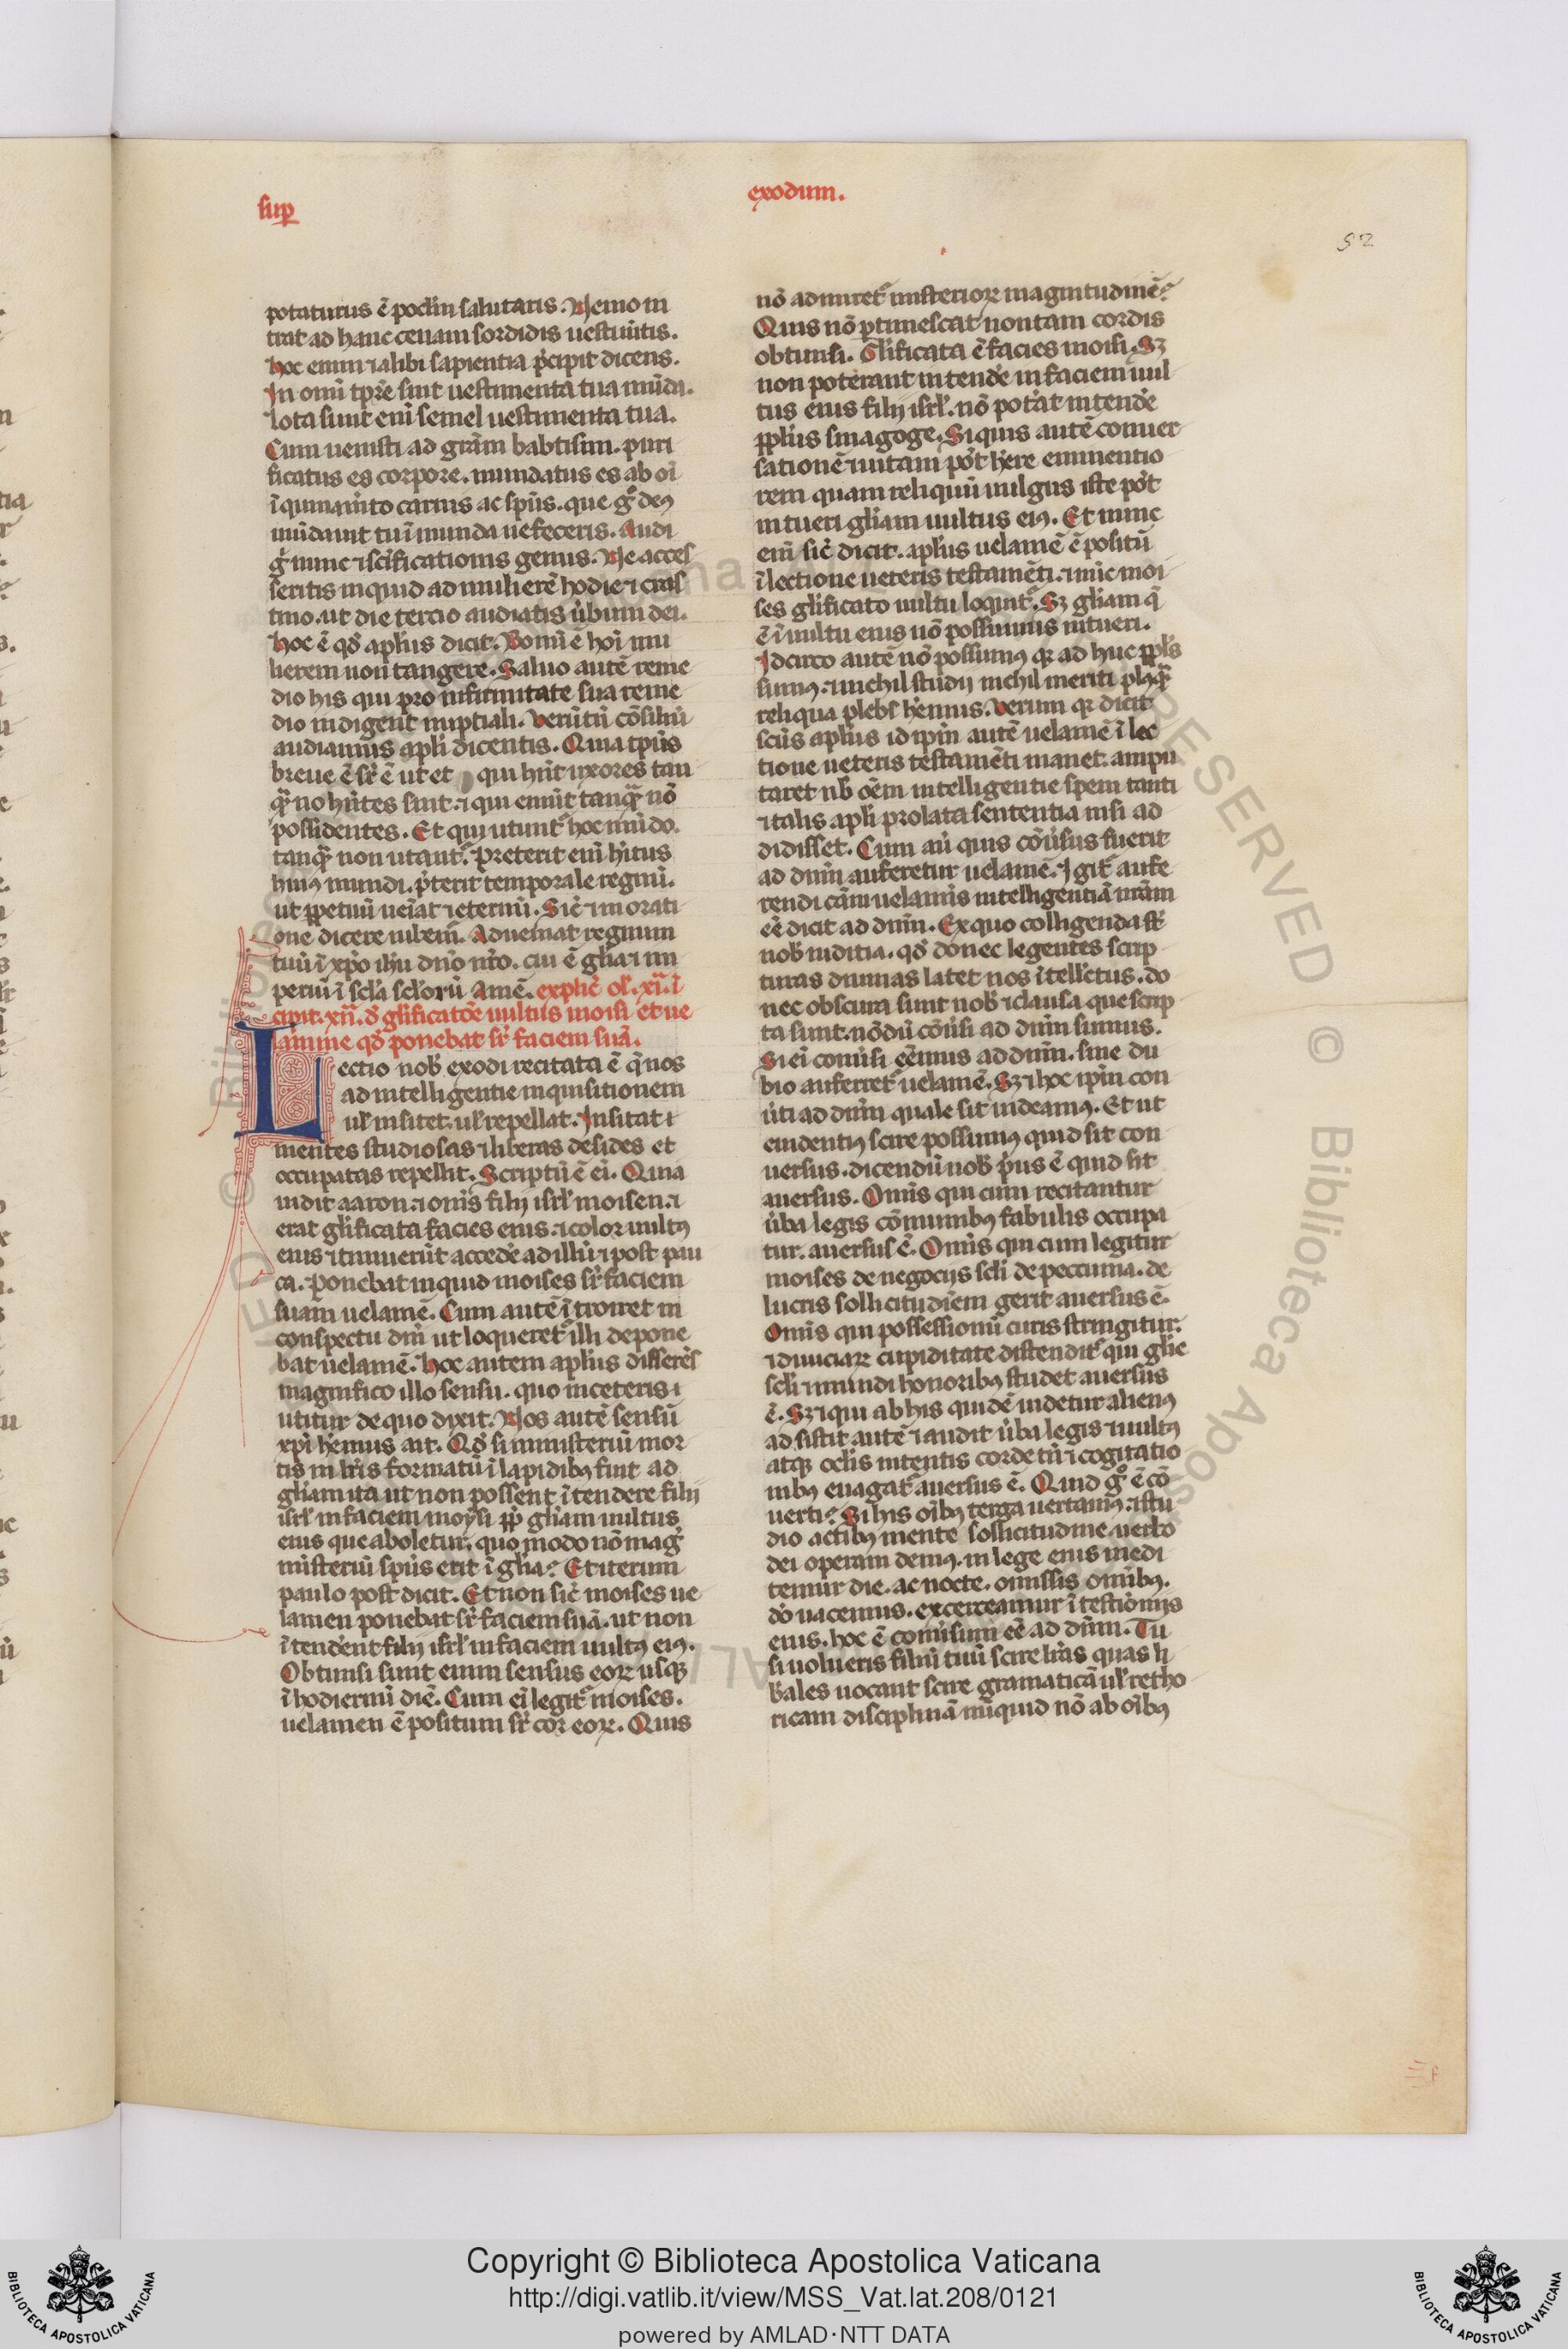 sup̄
exodum.
52
potaturus ē poclm̄ salutaris. Nemo in
trat ad hanc cenam sordidis uestim̄tis.
hoc enim ⁊alibi sapientia p̄cipit dicens.
In omī tp̄re sint uestimenta tua mūda.
lota sunt enī semel uestimenta tua.
Cum uenisti ad gr̄am babtismi. puri
ficatus es corpore. mundatus es ab oī
īquinam̄to carnis ac sp̄us. que g̊ deꝰ
mūdauit tu īmunda ne feceris. Audi
g̊ nunc ⁊sc̄ificationis genus. Ne acces
seritis inquid ad mulierē hodie ⁊ cras
tino. ut die tercio audiatis ūbum dei.
hoc ē qd̄ apl̄us dicit. Bonū ē hoī mu
lierem non tangere. Saluo autē reme
dio his qui pro infirmitate sua reme
dio indigent nuptiali. Verūtn̄ cōsiliū
audiamus apl̄i dicentis. Quia tp̄us
breue ē sr̄ ē ut et qui hn̄t uxores tan
qͣ̄ no hn̄tes sint. ⁊ qui emūt tanqͣ̄ nō
possidentes. Et qui utunt᷑ hoc mūdo.
tanqͣ̄ non utant᷑. Preterit enī hītus
huiꝰ mundi. p̄terit temporale regnū.
ut ꝑpetuū ueīat ⁊eternū. Sic̄ ⁊in orati
one dicere iubem̄. Adueniat regnum
tuū ī xp̄o ihū dn̄o nr̄o. cui ē gl̄ia ⁊ im
periū ī scl̄a scl̄orū Amē. explic̄ ol̄. xi. ī
cipit. xii. d̄ gl̄ificatōe uultus moisi et ue
lamine qd̄ ponebat sr̄ faciem suā.
Lectio nob̄ exodi recitata ē q̄ nos
ad intelligentie inquisitionem
ul̄ insitet. ul̄ repellat. Insitat ⁊
mentes studiosas ⁊liberas desides et
occupatas repellit. Scriptū ē eī. Quia
uidit aaron. ⁊ om̄s filij isrl̄ moisen. ⁊
erat gl̄ificata facies eius. ⁊color uultꝰ
eius ⁊timuerūt acced̄e ad illū ⁊ post pau
ca. Ponebat inquid moises sr̄ faciem
suam uelamē. Cum autē ītroiret in
conspectu dn̄i ut loqueret᷑ illi depone
bat uelamē. hoc autem apl̄us differēs
magnifico illo sensu. quo inceteris ⁊
utitur de quo dixit. Nos autē sensū
xp̄i hēmus ait. Qd̄ si ministeriū mor
tis in lr̄is formatū ī lapidibꝰ fuit ad
gl̄iam ita ut non possent ītendere filij
isrl̄ in faciem moysi ꝓp̄ gl̄iam uultus
eius que aboletur. quo modo nō mag̊
misteriū sp̄us erit ī gl̄ia? Et iterum
paulo post dicit. Et non sic̄ moises ue
lamen ponebat sr̄ faciem suā. ut non
ītend̄ent filij isrl̄ in faciem uultꝰ eiꝰ.
Obtunsi sunt enim sensus eoꝝ usqꝫ
ī hodiernū diē. Cum eī legit᷑ moises.
uelamen ē positum sr̄ cor eoꝝ. Quis
nō admiret᷑ misterioꝝ magnitudinē?
Quis nō ꝑtimescat nontam cordis
obtunsi. Gl̄ificata ē facies moisi. Sꝫ
non poterant intend̄e in faciem uul
tus eius filij isrl̄. nō pot̄at intend̄e
ppl̄us sinagoge. Siquis autē conuer
sationē ⁊uitam pōt hēre eminentio
rem quam reliquū uulgus iste pōt
intueri gl̄iam uultus eiꝰ. Et nunc
enī sic̄ dicit. apl̄us uelamē ē positū
ī lectione ueteris testamēti. ⁊ nūc moi
ses gl̄ificato uultu loquit᷑. Sꝫ gl̄iam q̄
ē ī uultu eius nō possumus intueri.
Idcirco autē nō possumꝰ qꝛ ad huc ppl̄s
sumꝰ. ⁊nichil studij nichil meriti plꝰqͣ̄
reliqua plebs hēmus. Verum qꝛ dicit
scūs apl̄us id ip̄m autē uelamē ī lec
tione ueteris testamēti manet. ampu
taret nb̄ oēm intelligentie spem tanti
⁊talis apl̄i prolata sententia nisi ad
didisset. Cum aū quis cōūsus fuerit
ad dnm̄ auferetur uelamē. Igit᷑ aufe
rendi cām uelamīs intelligentiā nr̄am
eē dicit ad dnm̄. Ex quo colligenda st̄
nob̄ inditia. qd̄ donec legentes scrip
turas diuinas latet nos ītell̄ctus. do
nec obscura sunt nob̄ ⁊clausa que scrip
ta sunt. nōdū cōūsi ad dnm̄ sumus.
Si eī conūsi eēmus ad dnm̄. sine du
bio auferret᷑ uelamē. Sꝫ ⁊hoc ip̄m con
ūti ad dnm̄ quale sit uideamꝰ. Et ut
euidentiꝰ scire possumꝰ quid sit con
uersus. dicendū nob̄ p̄us ē quid sit
auersus. Om̄is qui cum recitantur
ūba legis cōmunibꝰ fabulis occupa
tur. auersus ē. Om̄is qui cum legitur
moises de negocijs scl̄i de peccunia. de
lucris sollicitudīem gerit auersus ē.
Omīs qui possessionū curis stringitur.
⁊diuiciaꝝ cupiditate distendit᷑ qui gl̄ie
scl̄i ⁊mundi honoribꝰ studet auersus
ē. Sꝫ ⁊qui ab his quidē uidetur alienꝰ
ad sistit autē ⁊ audit ūba legis ⁊uultꝰ
atqꝫ ocl̄is intentis corde tn̄ ⁊ cogitatio
nibꝰ euagat᷑ auersus ē. Quid g̊ ē cō
uerti? Si his oībꝰ terga uertamꝰ. ⁊stu
dio actibꝰ mente sollicitudine. uerbo
dei operam demꝰ. in lege eius medi
temur die. ac nocte. omissis omībꝰ.
dō uacemus. exerceamur ī testiōnijs
eius. hoc ē conūsum eē ad dnm̄. Tu
si uolueris filiū tuū scire lr̄as quas li
b̄ales uocant scire gramaticā ul̄ retho
ricam disciplinā nūquid nō ab oībꝰ
Copyright © Biblioteca Apostolica Vaticana
http://digi.vatlib.it/view/MSS_Vat.lat.208/0121
powered by AMLAD·NTT DATA
BIBLIOTECA APOSTOLICA VATICANA
BIBLIOTECA APOSTOLICA VATICANA